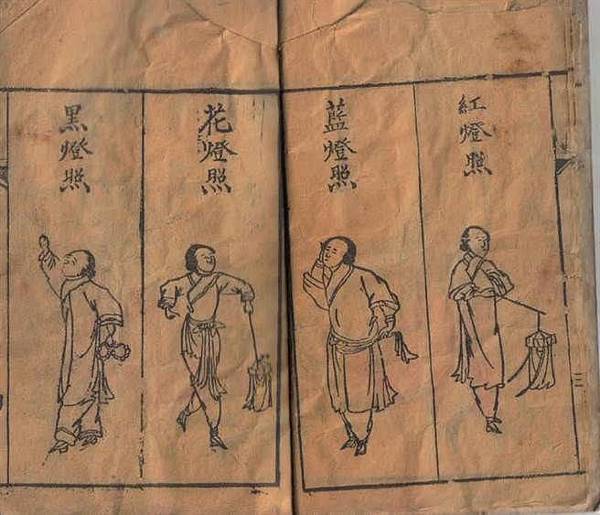 紅燈照
藍燈照
花燈照
黑燈照